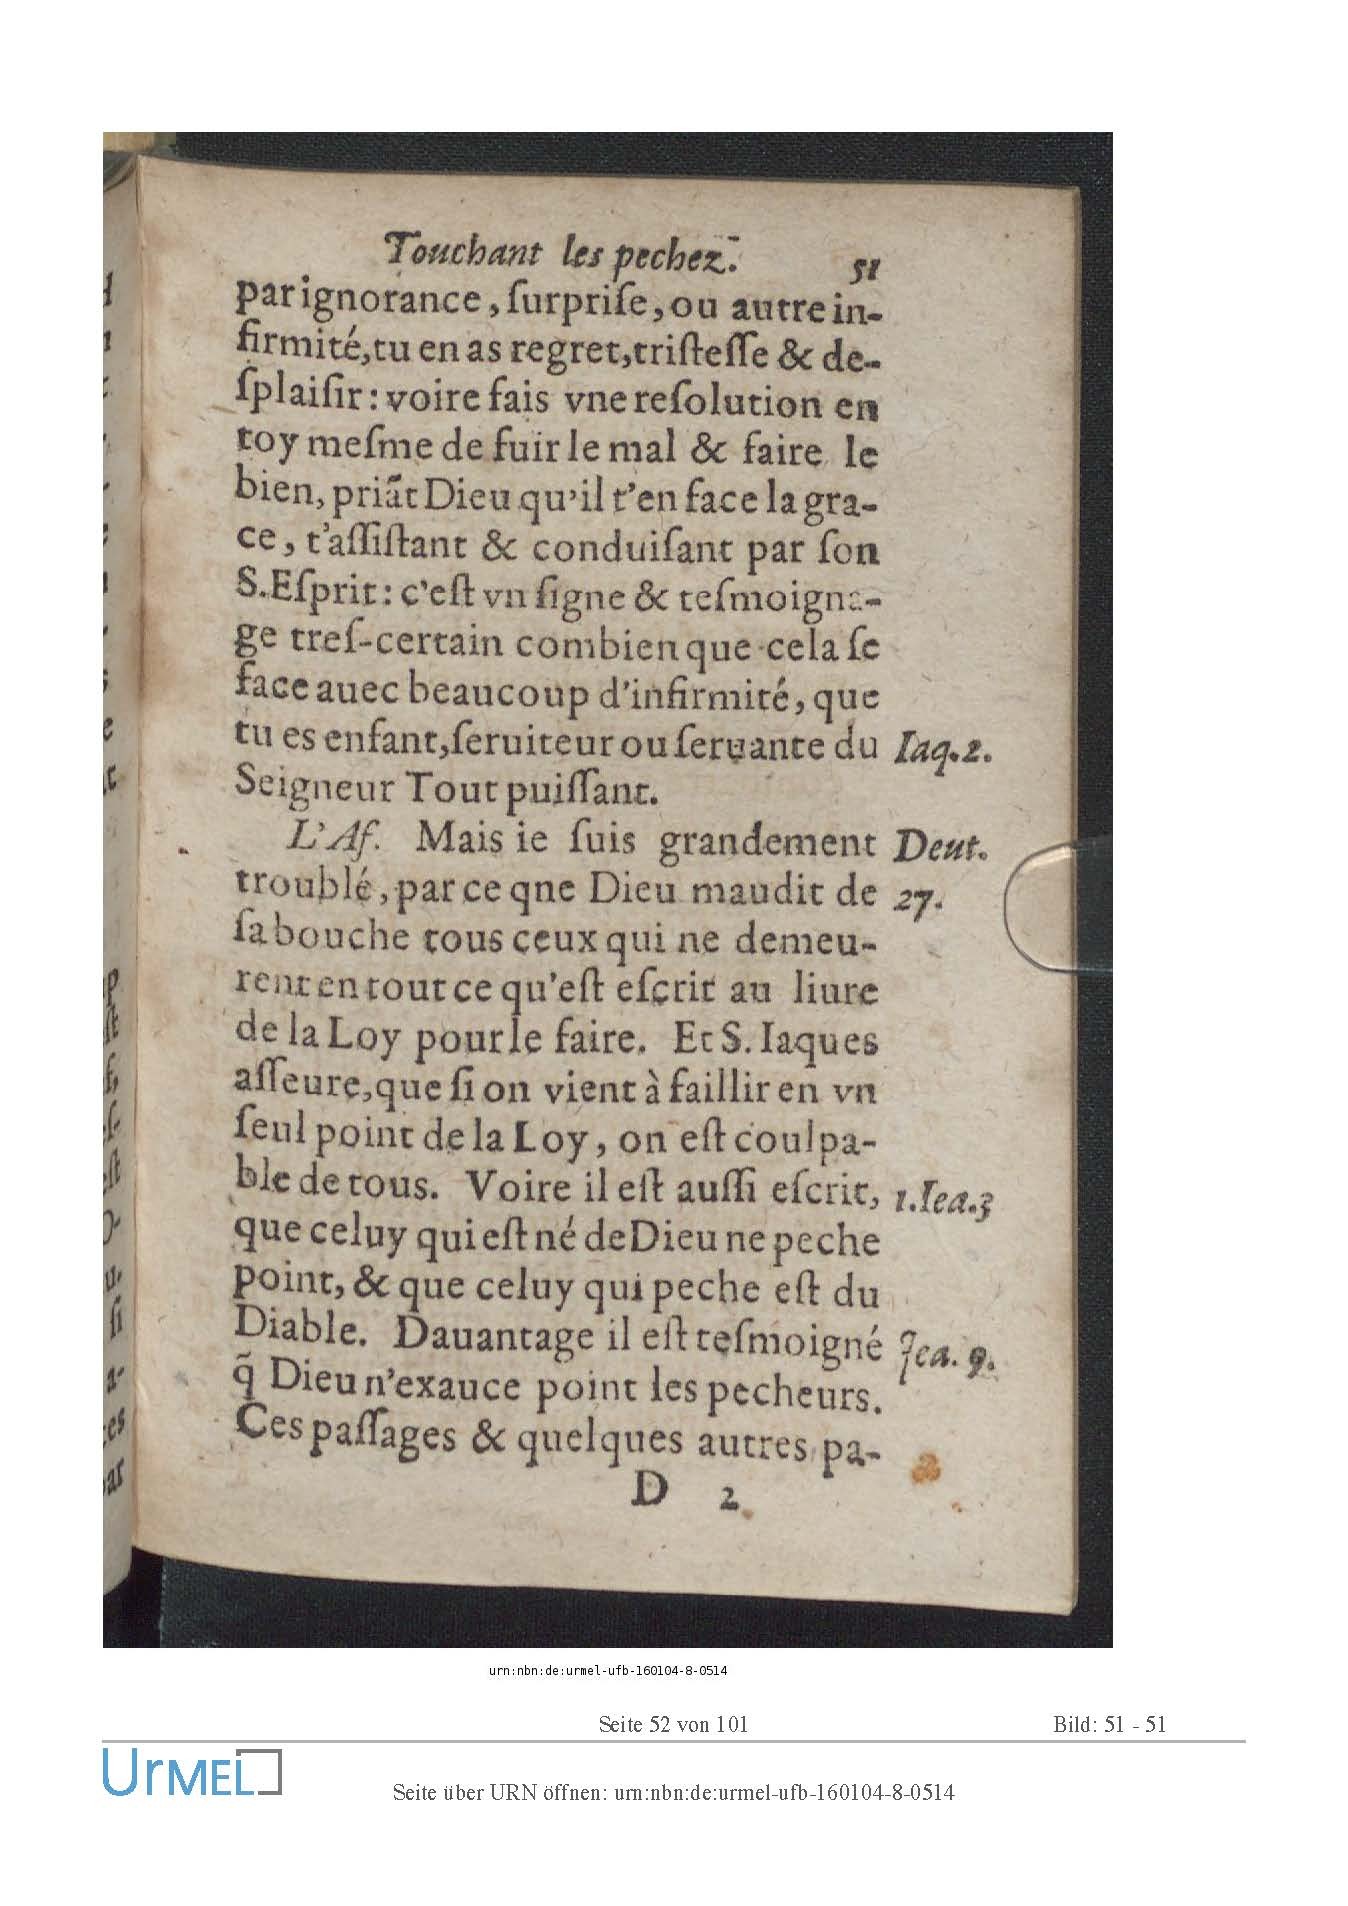 Touchant les pechez. 51
par ignorance, ſurpriſe, ou autre in-
firmité, tu en as regret, triſteſſe & de-
ſplaiſir: voire fais vne reſolution en
toy meſme de fuir le mal & faire le
bien, priāt Dieu qu'il t'en face la gra-
ce, t'aſſiſtant & conduiſant par ſon
S. Eſprit: c'eſt vn ſigne & teſmoigna-
ge treſ-certain combien que cela ſe
face auec beaucoup d'infirmité, que
tu es enfant, ſeruiteur ou ſeruante du Iaq. 2.
Seigneur Tout puiſſant.
L'Af. Mais ie ſuis grandement Deut.
troublé, par ce qne Dieu maudit de 27.
ſa bouche tous ceux qui ne demeu-
rent en tout ce qu'eſt eſcrit au liure
de la Loy pour le faire. Et S. Iaques
aſſeure, que ſi on vient à faillir en vn
ſeul point de la Loy, on eſt coulpa-
ble de tous. Voire il eſt auſſi eſcrit, 1. Iea. 3
que celuy qui eſt né de Dieu ne peche
point, & que celuy qui peche eſt du
Diable. Dauantage il eſt teſmoigné Jea. 9.
q̃ Dieu n'exauce point les pecheurs.
Ces paſſages & quelques autres pa-
D 2
urn:nbn:de:urmel-ufb-160104-8-0514
Seite 52 von 101 Bild: 51 - 51
UrMEL
Seite über URN öffnen: urn:nbn:de:urmel-ufb-160104-8-0514